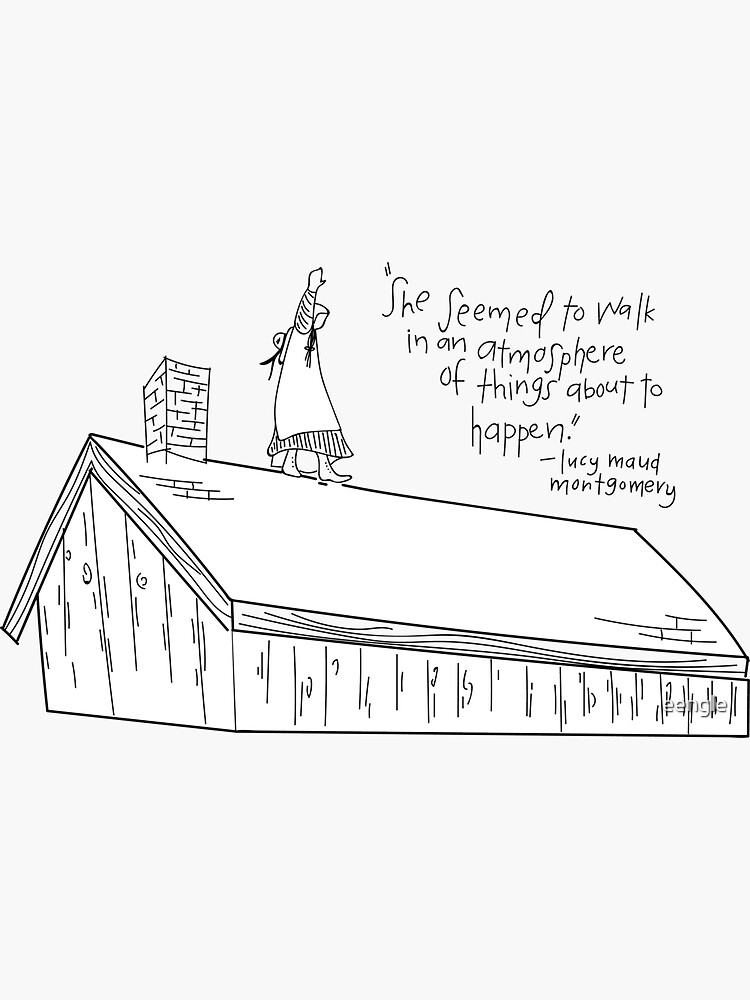 "She seemed to walk
in an atmosphere
of things about to
happen."
-lucy maud
montgomery
eengle